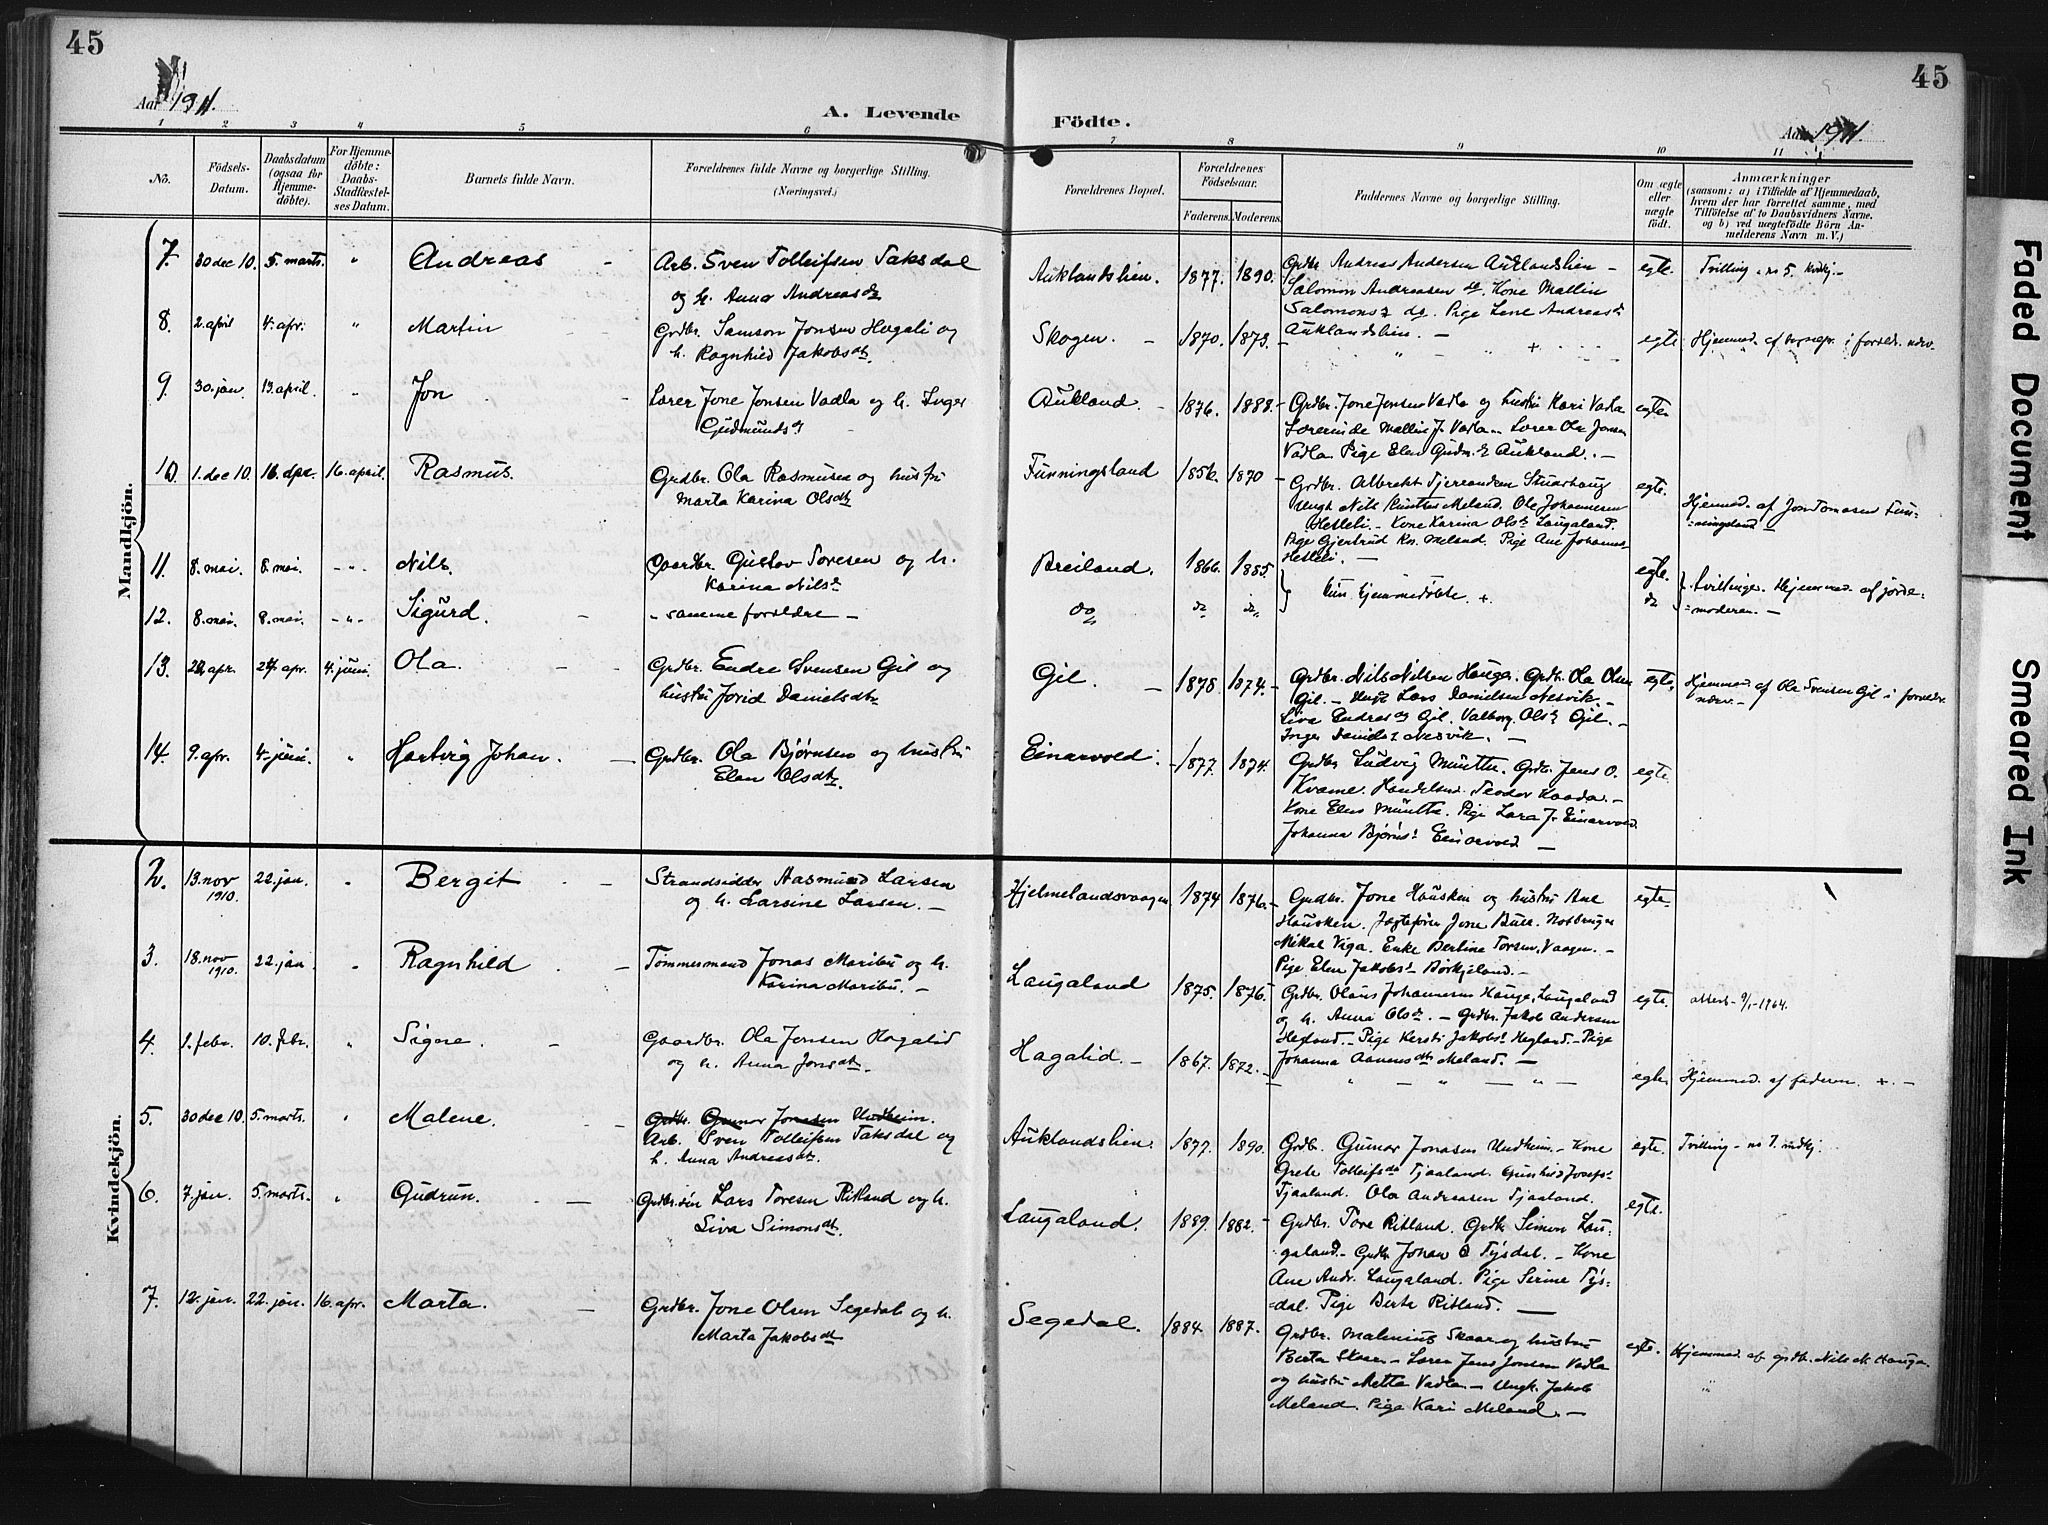 45
45
Aar 1911.
A. Levende
Födte.
Aar 1911
1 2 3 4 5 6 7 8 9 10 11
No.
Födsels-Datum.
Daabsdatum (ogsaa for Hjemme-döbte).
For Hjemme-döbte: Daabs-Stadfæstel-ses Datum.
Barnets fulde Navn.
Forældrenes fulde Navne og borgerlige Stilling.
(Næringsvei.)
Forældrenes Bopæl.
Forældrenes Födselsaar.
Faderens. Moderens.
Faddernes Navne og borgerlige Stilling.
Om ægte eller uægte födt.
Anmærkninger
(saasom: a) i Tilfælde af Hjemmedaab, hvem der har forrettet samme, med Tilföielse af to Daabsvidners Navne, og b) ved uægtefödte Börn An-melderens Navn m. V.)
Mandkjön.
7. 30 dec 10. 5. marts. " Andreas - Arb. Sven Tolleifsen Taksdal
og h. Anna Andreasdr
Auklandslien. 1877. 1890.
Grdbr. Andreas Andersen Auklandslien -
Salomon Andreasen do. Kone Mallin
Salomonsdr do. Pige Lene Andreasdr
Auklandslien. -
egte. Tvilling - no 5. kvikj. -
8. 2. april 4. apr. " Martin
Grdbr. Samson Jonsen Hagali og
h. Ragnhild Jakobsdtr.
Skogen. - 1870. 1873. - " - " + egte
Hjemmed. af
9. 30. jan. 13. april. " Jon
Lærer Jone Jonsen Vadla og h. Inger
Gudmundsdr
Aukland. - 1876. 1888. -
Grdbr. Jone Jonsen Vadla og hustru Kari Vadla
Lærerinde Mallin J. Vadla. - Lærer Ole Jonsen
Vadla. Pige Elen Gudm. dr Aukland. -
egte.
10. 1. dec 10. 16. apr. 16. april. Rasmus.
Grdbr. Ola Rasmusen og hustru
Marta Karina Olsdtr
Funningsland 1856. 1870
Grdbr. Albrekt
Ungk Nils Meland. Ole Johannesen
Hetleli. - Kone Karina Olsdr Laugaland.
Pige Gjertrud Kn. Meland. Pige Ane Johannes-
Hetleli. -
egte.
Hjemmed. af Jon Tomasen Fun-
ningsland -
11. 8. mai. 8. mai. - " - Nils.
Gaardbr. Gustav Toresen og h.
Karina Nilsdr
Breiland. 1866. 1885. egte.
kun hjemmedøbte. +
12. 8. mai. 8. mai. - " - Sigurd. -
- samme forældre -
do do do do
Tvillinger. Hjemmed. af jorde-
moderen. -
13. 22. apr. 27. apr. 4. juni. Ola. - -
Grdbr. Endre Svensen Gil og
hustru Jorid Danielsdtr
Gil. - 1878. 1874. -
Grdbr. Nils Nilsen Hauga. Grdbr. Ola Olsen
Gil. - Ungk Lars Danielsen Nesvik. -
Liva Endresdr Gil. Valborg Olsdr Gil. -
Inger Danielsdr Nesvik. -
egte.
Hjemmed. af Ola Svensen Gil i forældr.
nærv. -
14. 9. apr. 4. juni. " Hartvig Johan. -
Grdbr. Ola Bjørnsen og hustru
Elen Olsdtr.
Einarvold. - 1877. 1874.
Grdbr Ludvig Münthe. Grdbr. Jens O.
Kvame. Handelsm. Teodor Kaada. -
Kone Elen Münthe. Pige Lara J. Einarvold
Johanna Bjørnsd Einarvold -
egte.
Kvindekjön.
2. 13. nov 1910. 22. jan. " Bergit -
Strandsidder Aasmund Larsen
og h. Larsine Larsen. -
Hjelmelandsvaagen 1874 1876. -
Grdbr. Jone Hausken og hustru Ane
Hausken. Jægtefører Jone Buer.
Mikal Viga. Enke Berline Torsen, Vaagen. -
Pige Elen Jakobsd Børkjeland. -
egte.
3. 18. nov 1910. 22. jan. " Ragnhild -
Tømmermand Jonas Maribu og h.
Karina Maribu. -
Laugaland 1875. 1876.
Grdbr. Olaus Johannesen Hauge, Laugaland
og h. Anna Olsdr. - Grdbr. Jakob Andersen
Hegland. - Pige Kersti Jakobsd Hegland. - Pige
Johanna Aanensdtr Meland. -
egte. attest 9/1-1964.
4. 1. febr. 10. febr. " Signe. -
Gaardbr. Ola Jonsen Hagalid
og h. Anna Jonsdtr.
Hagalid. - 1867. 1872. -
- " - " - " - egte.
Hjemmed. af faderen. + -
5. 30 dec 10. 5. marts. " Malene.
Grdbr. Gunnar Jonasen Undheim.
Arb. Sven Tolleifsen Taksdal og
h. Anna Andreasdtr.
Auklandslien. 1877. 1890.
Grdb. Gunnar Jonasen Undheim. - Kone
Grete Tolleifsdr Tjaaland. Gunhild Josefs-
Tjaaland. Ola Andreasen Tjaaland.
egte. Tvilling - no 7. mdkj.
6. 7. jan. 5. marts. " Gudrun. -
Grdbr.søn Lars Toresen Ritland og h.
Liva Simonsdtr.
Laugaland. 1889. 1882. -
Grdbr. Tore Ritland. Grdbr Simon Lau-
galand. - Grdbr. Johan O Tysdal. - Kone
Ane Andr. Laugaland. Pige Serine Tys-
dal. Pige Berta Ritland. -
egte.
7. 12. jan. 22. jan. 16. apr. Marta. -
Grdbr. Jone Olsen Segedal og h.
Marta Jakobsdtr
Segedal. 1884. 1887.
Grdbr. Malenius Skaar og hustru
Berta Skaar - Lærer Jens Jonsen Vadla
og hustru Metta Vadla. - Ungk. Jakob
Meland. Pige Kari Meland. -
egte. Hjemmed. af grdb. Nils N. Hauga.
"
Faded Document
Smeared Ink